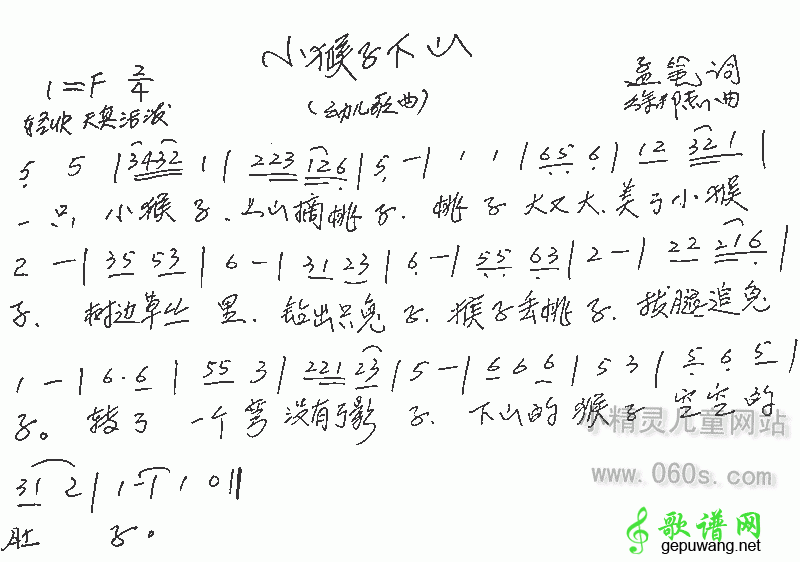 小猴子下山
1=F 2/4
孟 词
轻快 天真活泼
(幼儿歌曲)
曲
5 5 | 3432 1 | 223 126 | 5 - | 1 1 | 65 6 | 12 321 |
一只小猴子,上山摘桃子.桃子大又大,美了小猴
2 - | 35 53 | 6 - | 31 23 | 6 - | 55 63 | 2 - | 22 216 |
子.树边草丛里,钻出只兔子.猴子丢桃子.拔腿追兔
1 - | 6·6 | 55 3 | 221 23 | 5 - | 6 6 6 | 5 3 | 5 6 5 |
子。转了一个弯没有了影子.下山的猴子空空的
精灵儿童网站
www.060s.com
31 2 | 1 - | 1 0 ‖
肚子。
歌谱网
gepuwang.net